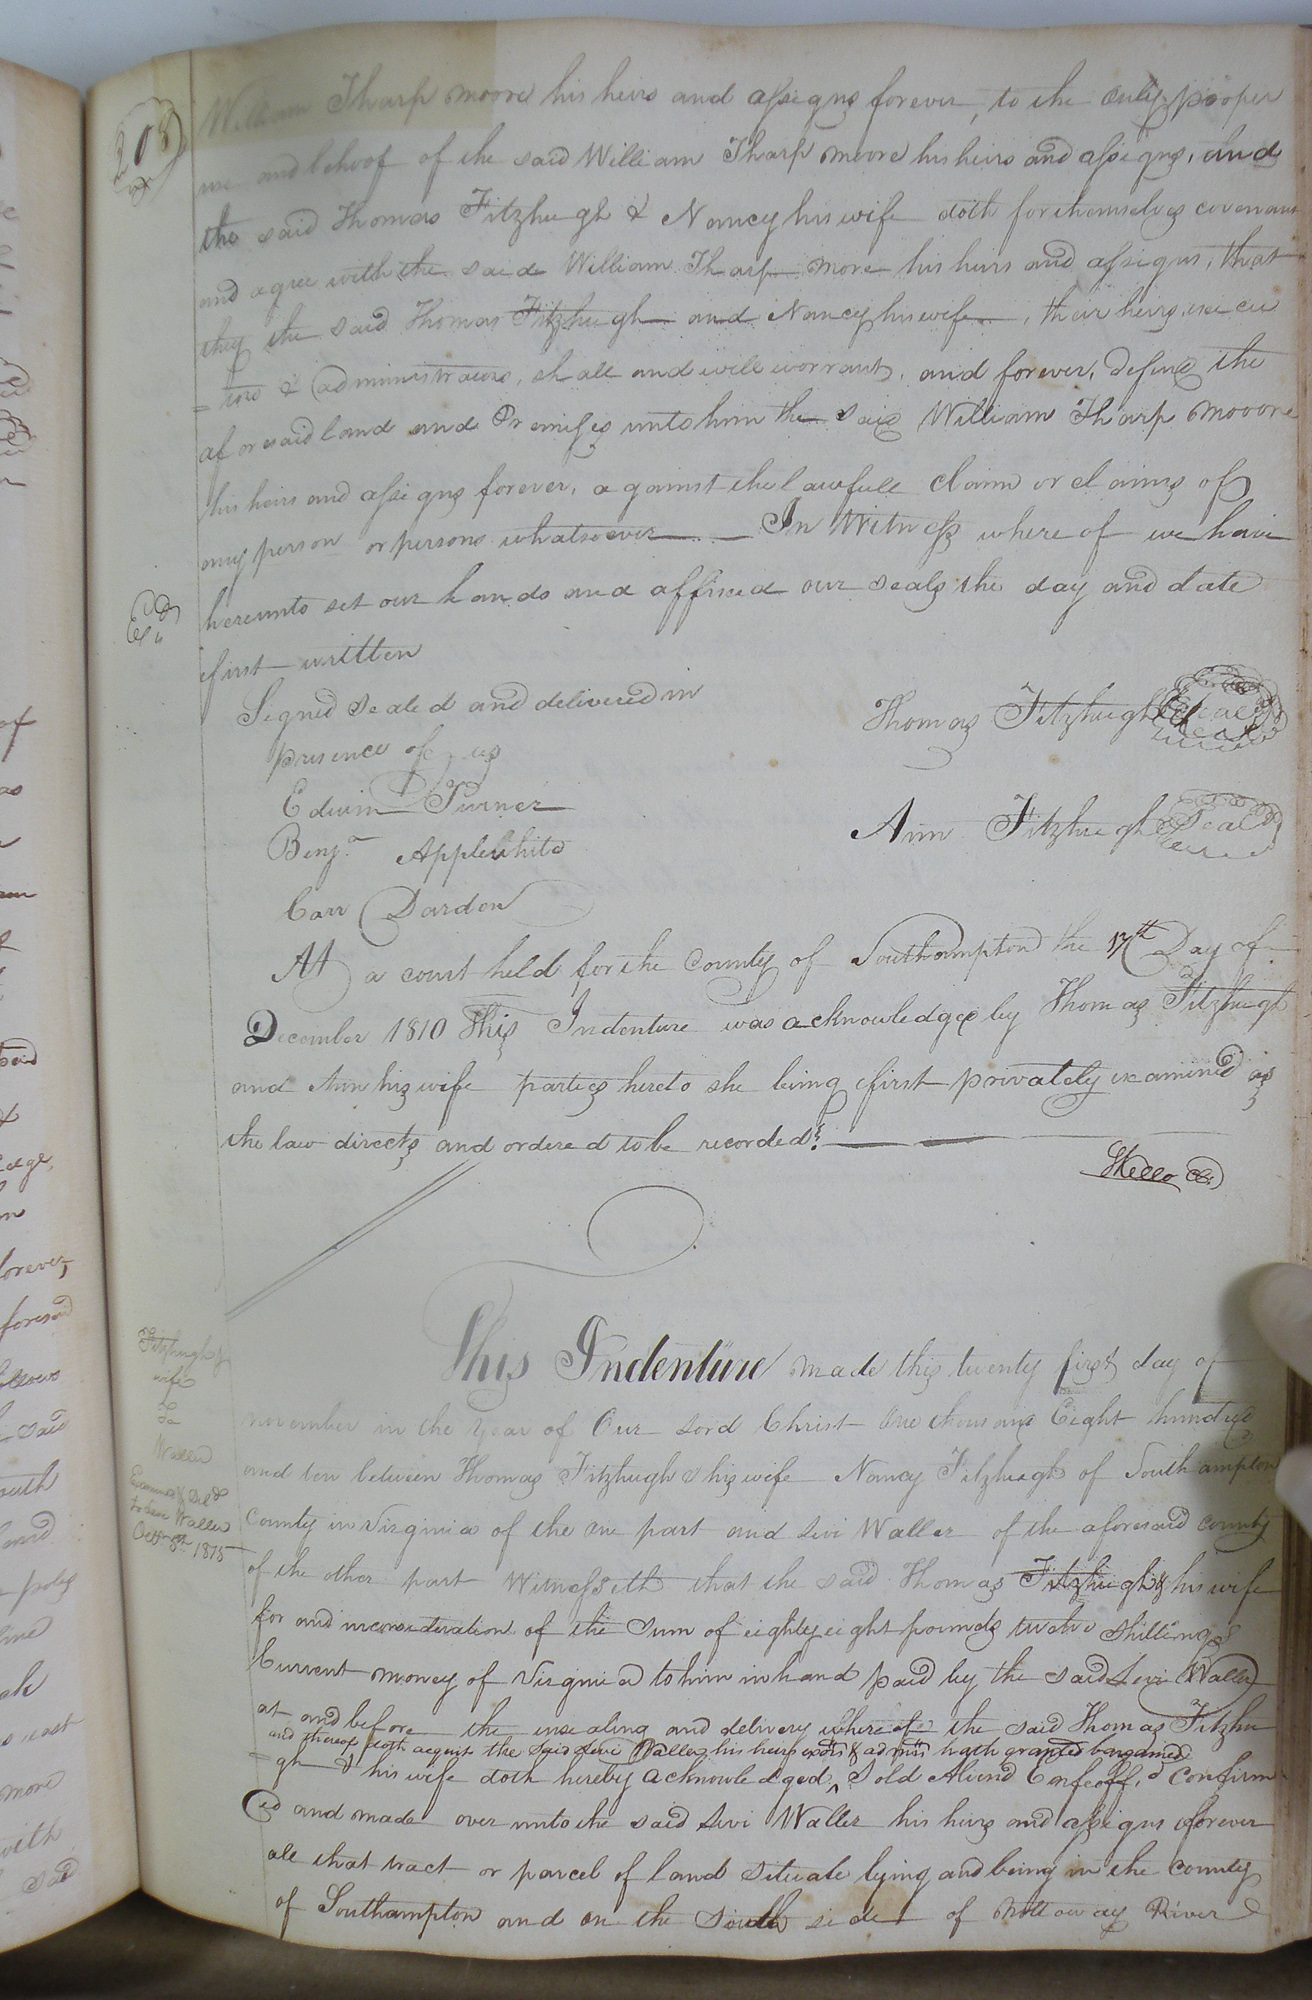 208
William Tharp Moore his heirs and assigns forever, to the only proper
use and behoof of the said William Tharp moore his heirs and assigns, and
the said Thomas Fitzhugh & Nancy his wife doth for themselves covenant
and agree with the said William Tharp more his heirs and assigns, that
they the said Thomas Fitzhugh and Nancy his wife, their heirs, execu
=tors & administrators, shall and will warrant, and forever, defend the
aforesaid land and Premises unto him the said William Tharp Mooore
his heirs and assigns forever, against the lawfull claim or claims of
any person or persons whatsoever In Witness where of we have
hereunto set our hands and affixed our seals the day and date
first written
Signed sealed and delivered in
presence of us
Thomas Fitzhugh Seal
Edwin Turner
Benja Applewhite
Ann Fitzhugh Seal
Carr Darden
At a court held for the County of Southampton the 17th Day of
December 1810 This Indenture was acknowledged by Thomas Fitzhugh
and Ann his wife parties hereto she being first privately examined as
the law directs and ordered to be recorded.
Fitzhugh &
wife
To
Waller
Examined & Deld
to Levi Waller
Octr 8th 1815
This Indenture made this twenty first day of
november in the year of Our Lord Christ One thousand Eight hundred
and ten between Thomas Fitzhugh & his wife Nancy Fitzhugh of Southampton
County in Virginia of the one part and Levi Waller of the aforesaid county
of the other part Witnesseth that the said Thomas Fitzhugh & his wife
for and inconsideration of the Sum of eighty eight pounds twelve shillings
Current money of Virginia to him in hand paid by the said Levi Waller
at and before the insealing and delivery where of the said Thomas Fitzhu
and thereof doth acquit the said Levi Waller his heirs exors & admrs hath granted bargained
=gh & his wife doth hereby acknowledged, ^ Sold Aliend Enfeoff,d Confirm
ed and made over unto the said Levi Waller his heirs and assigns forever
all that tract or parcel of land situate lying and being in the county
of Southampton and on the South side of Nottoway River